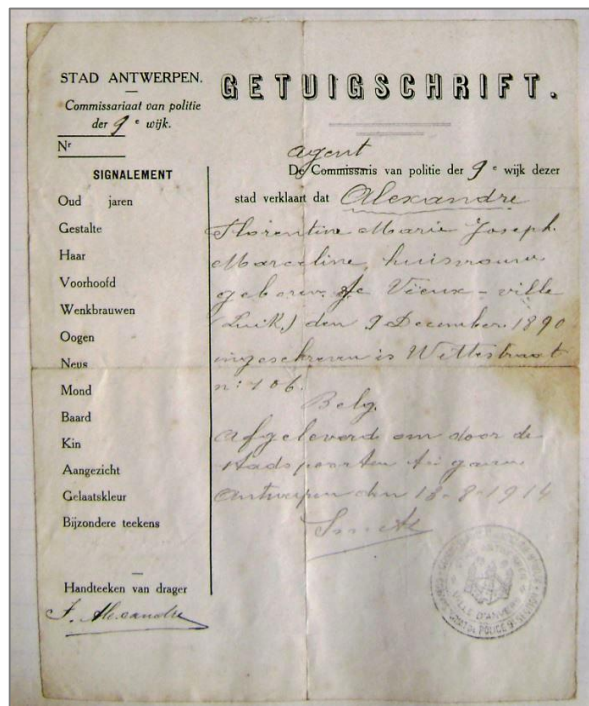 STAD ANTWERPEN.
Commissariaat van politie
der 9e wijk.
Nr
SIGNALEMENT
Oud jaren
Gestalte
Haar
Voorhoofd
Wenkbrauwen
Oogen
Neus
Mond
Baard
Kin
Aangezicht
Gelaatskleur
Bijzondere teekens
Handteeken van drager
F. Alexandre
GETUIGSCHRIFT.
agent
De Commissaris van politie der 9e wijk dezer
stad verklaart dat Alexandre
Florentine Marie Joseph.
Marceline, huisvrouw
geboren te Vieux-ville
(Luik) den 9 December 1890
ingeschreven is Wittestraat
n: 106.
Belg.
Afgeleverd om door de
stadspoorten te gaan
Antwerpen den 18-8-1914
Smets
VILLE D'ANVERS
POLICE